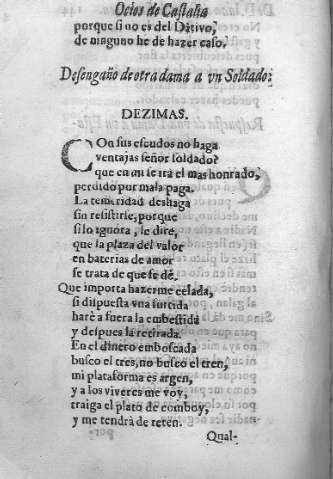 Ocios de Castalia
porque si no es del Dativo,
de ninguno he de hazer caso.
Desengaño de otra dama a vn Soldado:
DEZIMAS.
COn sus escudos no haga
ventajas señor soldado?
que en mi se irà el mas honrado,
perdido por mala paga.
La temeridad deshaga
sin resistirse, porque
si lo ignora, le dirè,
que la plaza del valor
en baterias de amor
se trata de que se dè.
Que importa hazerme celada,
si dispuesta vna surtida
harè a fuera la embestida
y despues la retirada.
En el dinero emboscada
busco el tres, no busco el tren,
mi plataforma es argen,
y a los viveres me voy,
traiga el plato de comboy,
y me tendrà de reten.
Qual-